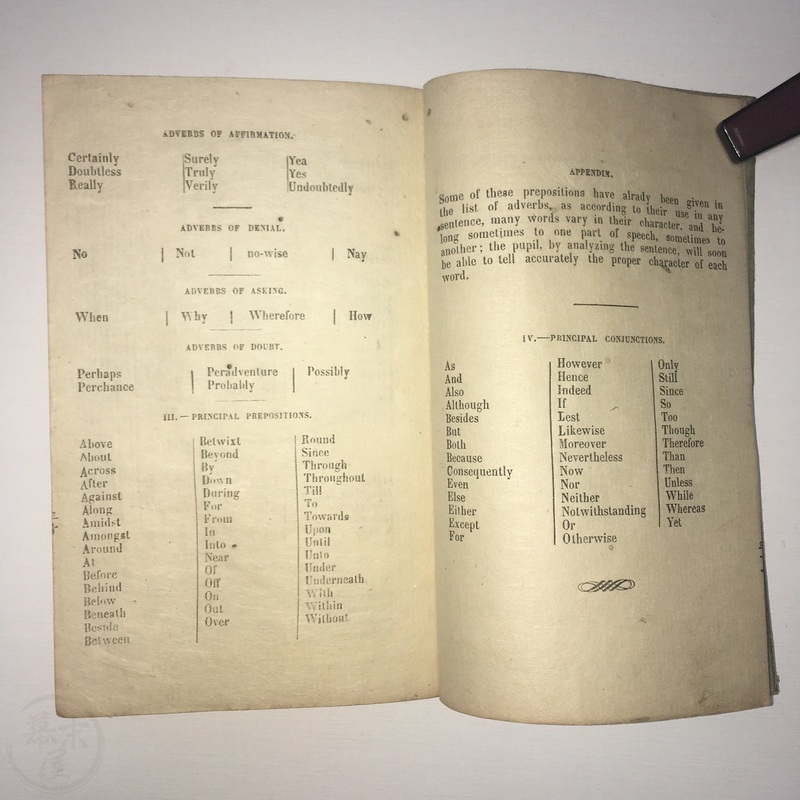 ADVERBS OF AFFIRMATION.
Certainly Surely Yea
Doubtless Truly Yes
Really Verily Undoubtedly
ADVERBS OF DENIAL.
No Not no-wise Nay
ADVERBS OF ASKING.
When Why Wherefore How
ADVERBS OF DOUBT.
Perhaps Peradventure Possibly
Perchance Probably
III.—PRINCIPAL PREPOSITIONS.
Above Betwixt Round
About Beyond Since
Across By Through
After Down Throughout
Against During Till
Along For To
Amidst From Towards
Amongst In Upon
Around Into Until
At Near Unto
Before Of Under
Behind Off Underneath
Below On With
Beneath Out Within
Beside Over Without
Between
APPENDIX.
Some of these prepositions have alrady been given in
the list of adverbs, as according to their use in any
sentence, many words vary in their character, and be-
long sometimes to one part of speech, sometimes to
another; the pupil, by analyzing the sentence, will soon
be able to tell accurately the proper character of each
word.
IV.—PRINCIPAL CONJUNCTIONS.
As However Only
And Hence Still
Also Indeed Since
Although If So
Besides Lest Too
But Likewise Though
Both Moreover Therefore
Because Nevertheless Than
Consequently Now Then
Even Nor Unless
Else Neither While
Either Notwithstanding Whereas
Except Or Yet
For Otherwise
幕末屋